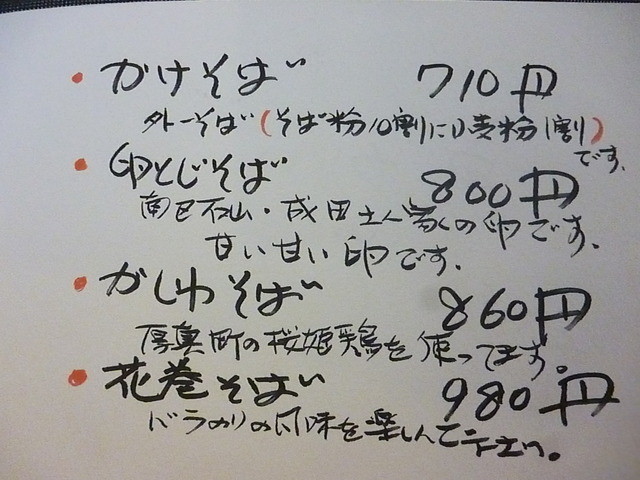 ・かけそば 710円
外一そば(そば粉10割に小麦粉1割)
です。
・卵とじそば 800円
南区石山・成田さん家の卵です。
甘い甘い卵です。
・かしわそば 860円
厚真町の桜姫鶏を使ってます。
・花巻そば 980円
バラのりの風味を楽しんで下さい。